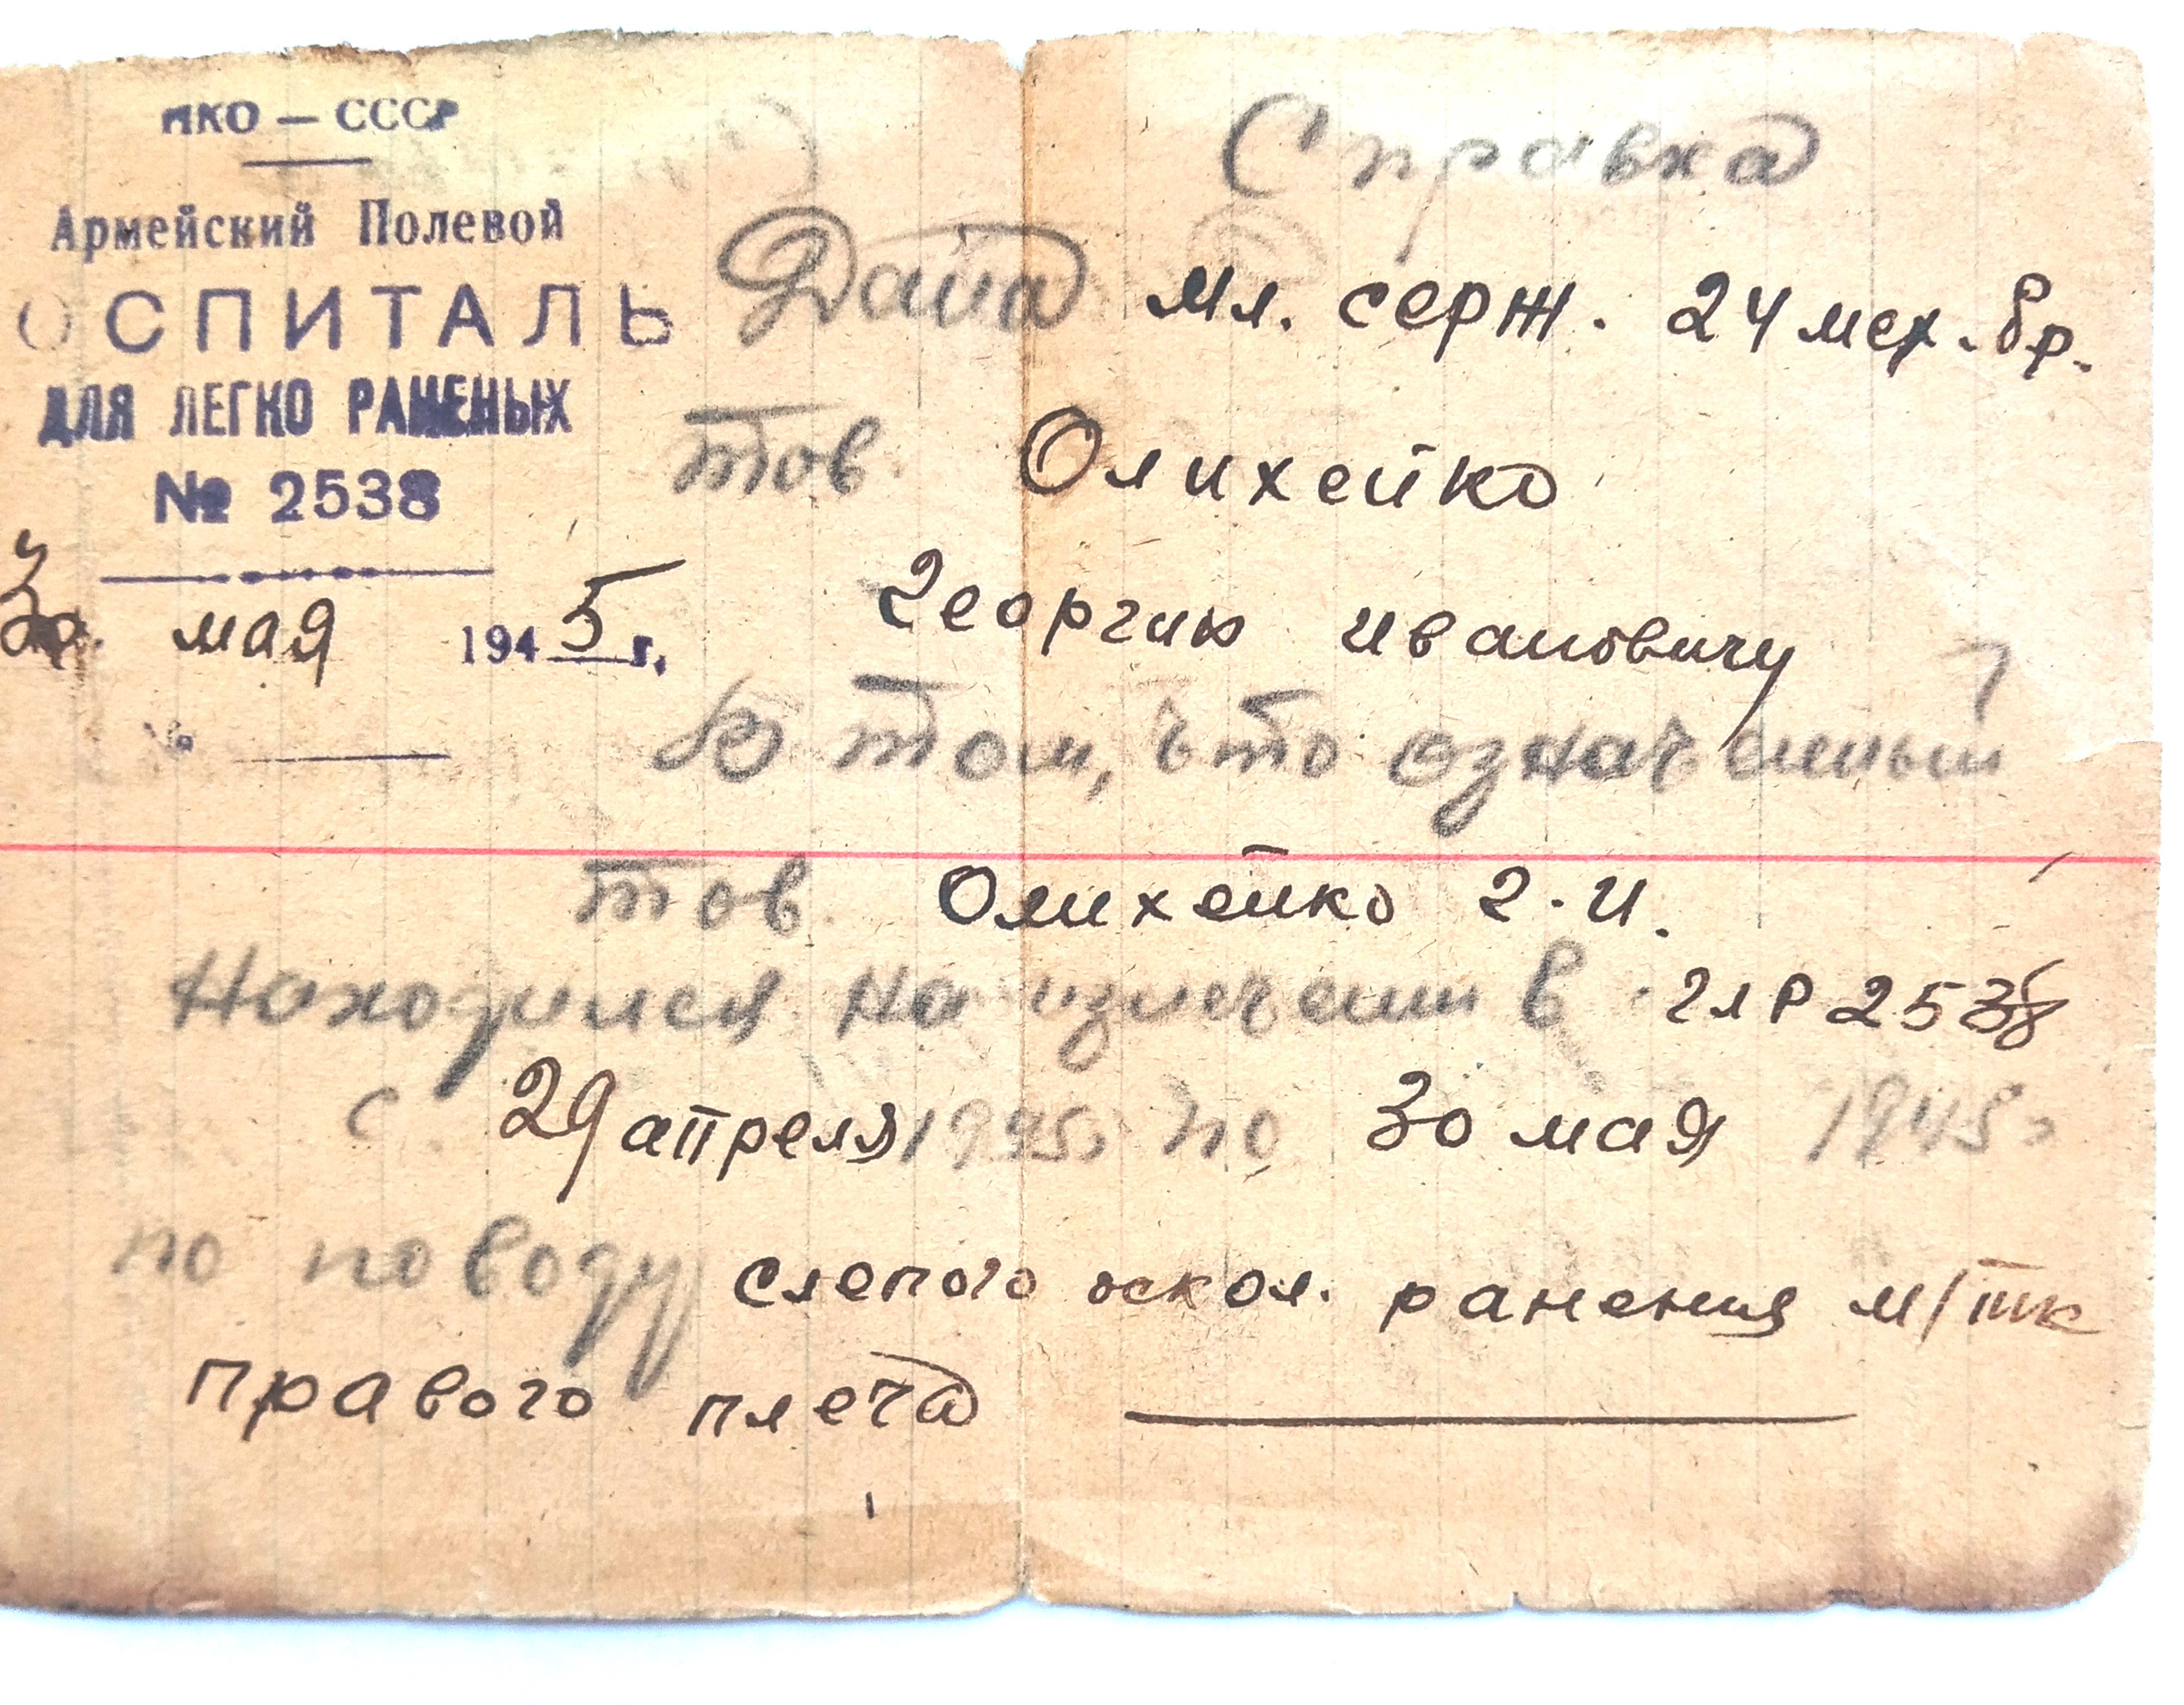 НКО — СССР
Армейский Полевой
ОСПИТАЛЬ
ДЛЯ ЛЕГКО РАНЕНЫХ
№ 2538
30. мая 1945 г.
№
Справка
Дана мл. серж. 24 мех. бр.
тов. Олихейко
Георгию Ивановичу
В том, что означенный
тов. Олихейко Г. И.
Находился на излечении в ГЛР 2538
с 29 апреля 1945 г. по 30 мая 1945 г.
по поводу слепого оскол. ранения м/тк
правого плеча